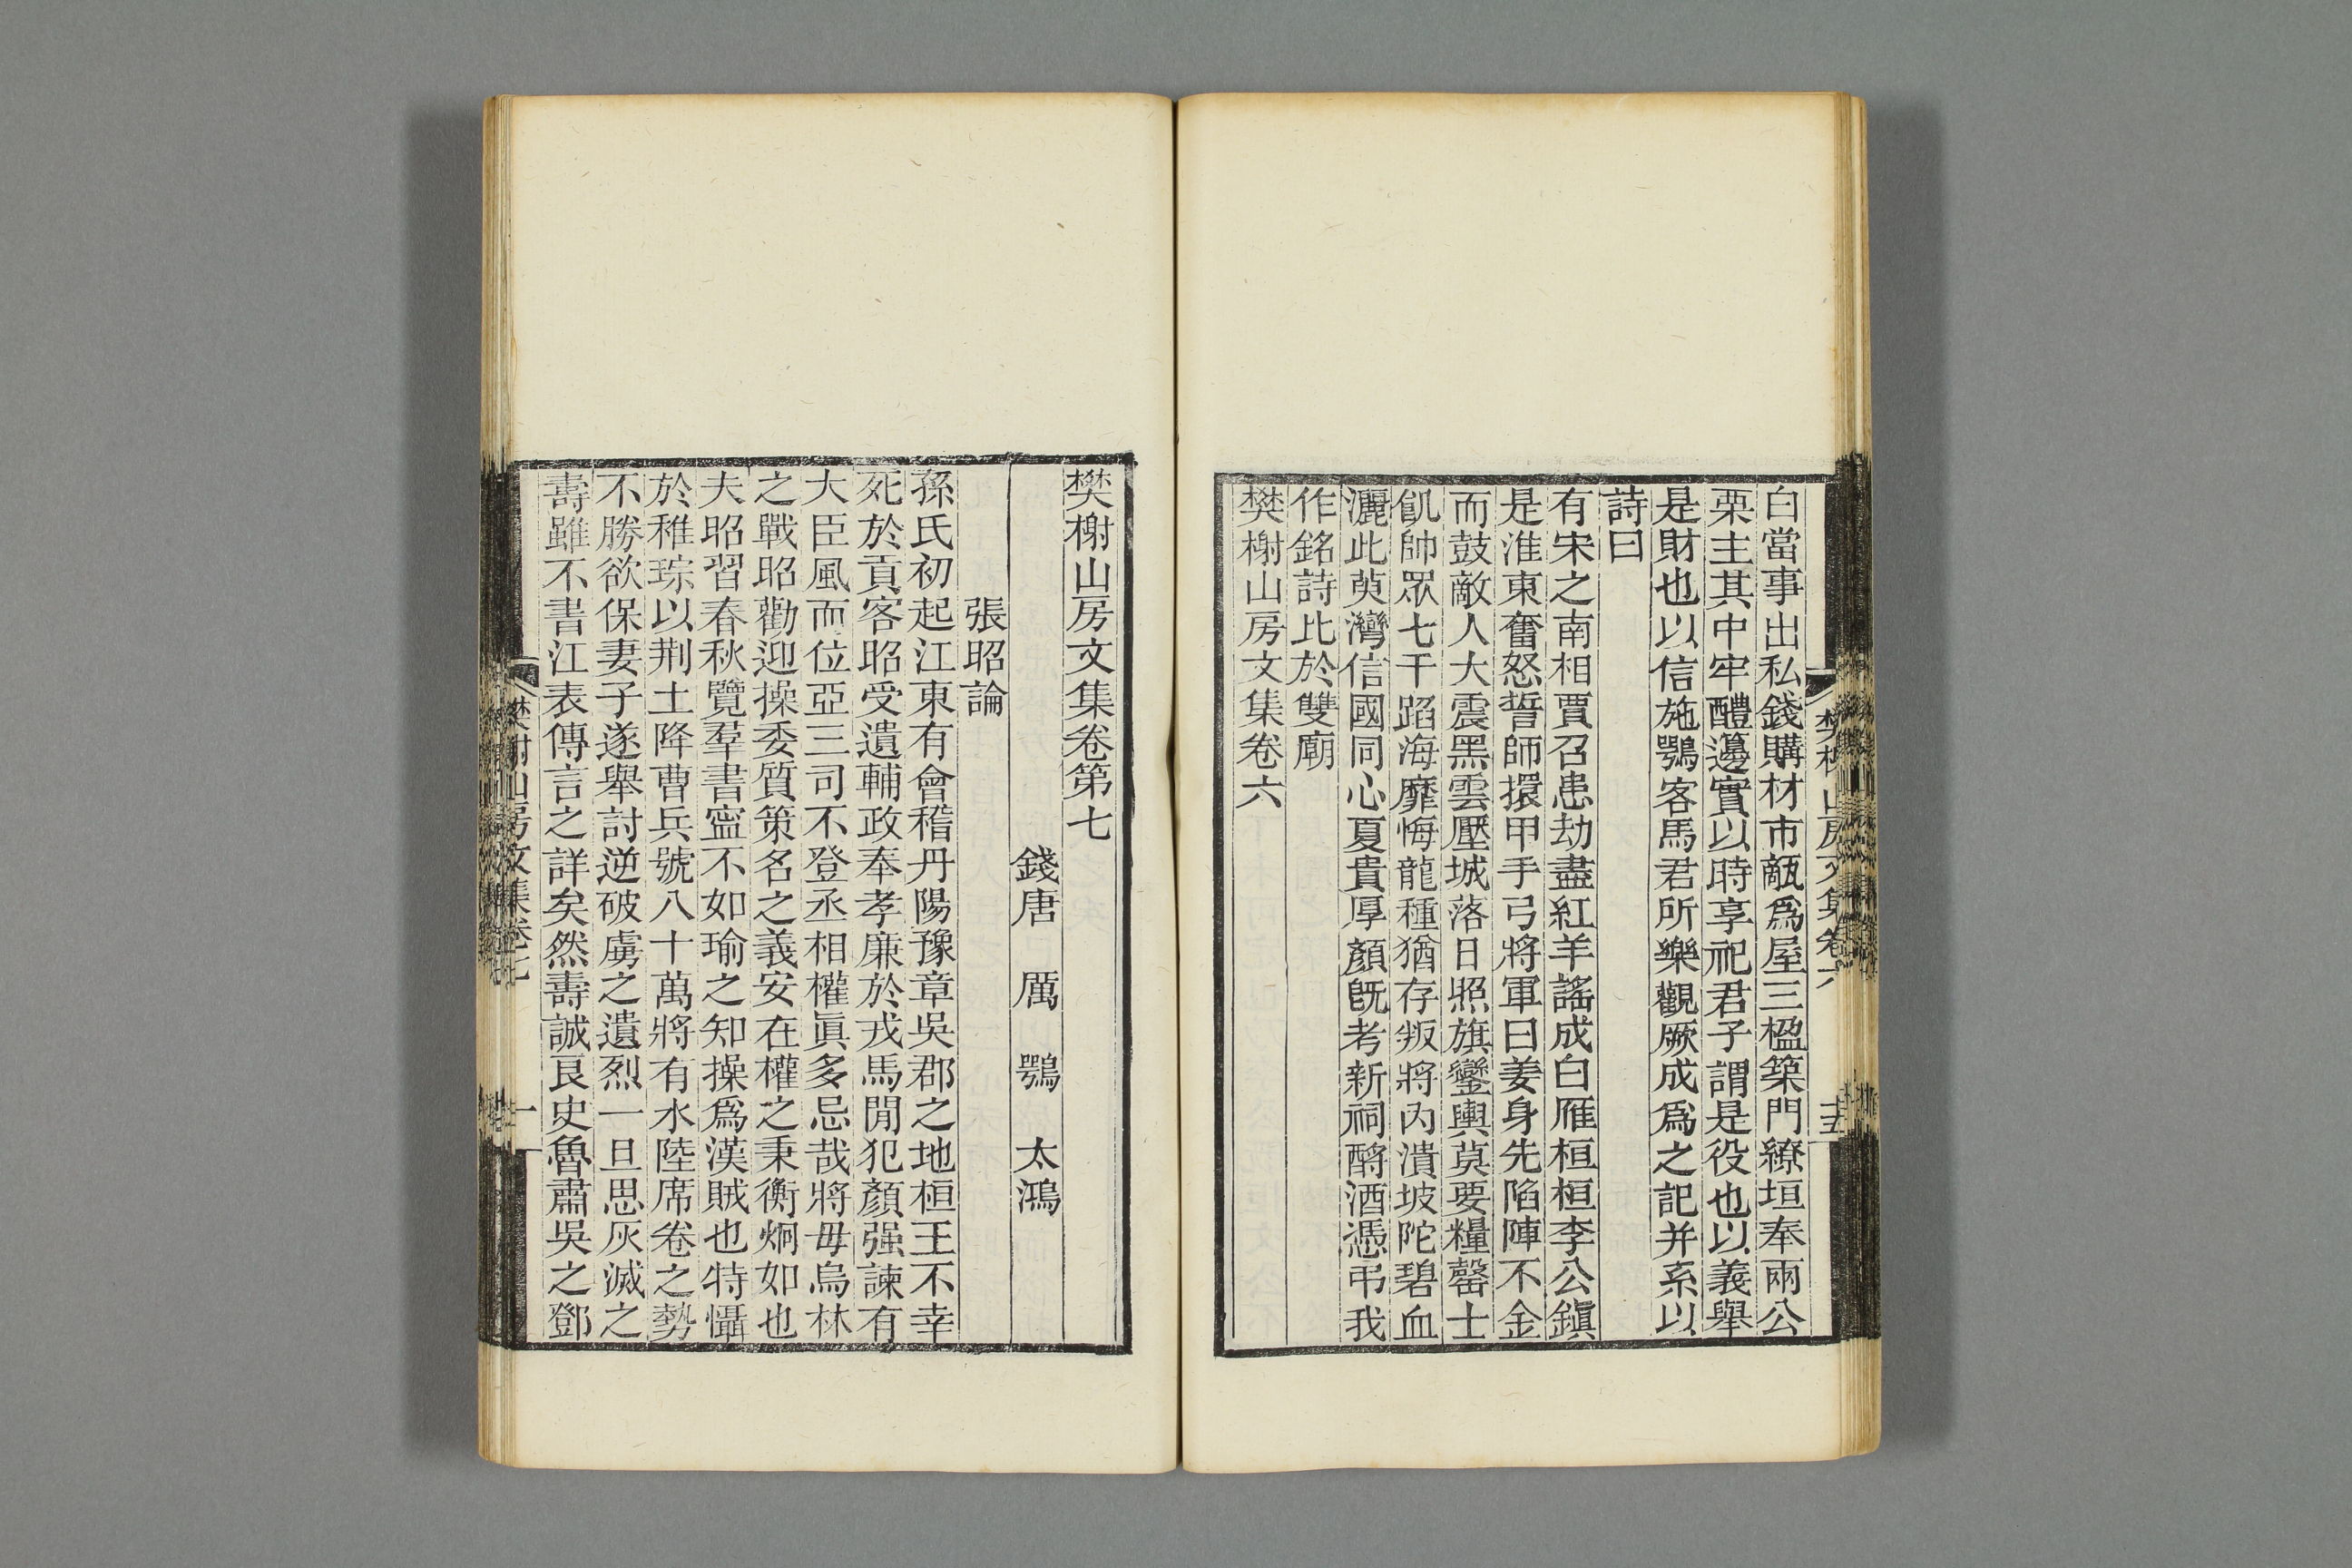 白當事出私錢購材市甋爲屋三楹築門繚垣奉兩公
栗主其中牢醴籩實以時享祀君子謂是役也以義舉
是財也以信施鶚客馬君所樂觀厥成爲之記并系以
詩曰
有宋之南相賈召患劫盡紅羊謠成白雁桓桓李公鎮
是淮東奮怒誓師擐甲手弓將軍曰姜身先陷陣不金
而鼓敵人大震黑雲壓城落日照旗鑾輿莫要糧罄士
飢帥眾七千蹈海靡悔龍種猶存叛將內潰坡陀碧血
灑此萸灣信國同心夏貴厚顏旣考新祠酹酒憑弔我
作銘詩比於雙廟
樊榭山房文集卷六
樊榭山房文集卷六
樊榭山房文集卷第七
錢唐 厲 鶚 太鴻
張昭論
孫氏初起江東有會稽丹陽豫章吳郡之地桓王不幸
死於貢客昭受遺輔政奉孝廉於戎馬閒犯顏强諫有
大臣風而位亞三司不登丞相權眞多忌哉將毋烏林
之戰昭勸迎操委質策名之義安在權之秉衡炯如也
夫昭習春秋覽羣書寍不如瑜之知操爲漢賊也特懾
於稚琮以荆土降曹兵號八十萬將有水陸席卷之勢
不勝欲保妻子遂舉討逆破虜之遺烈一旦思灰滅之
壽雖不書江表傳言之詳矣然壽誠良史魯肅吳之鄧
樊榭山房文集卷七
一